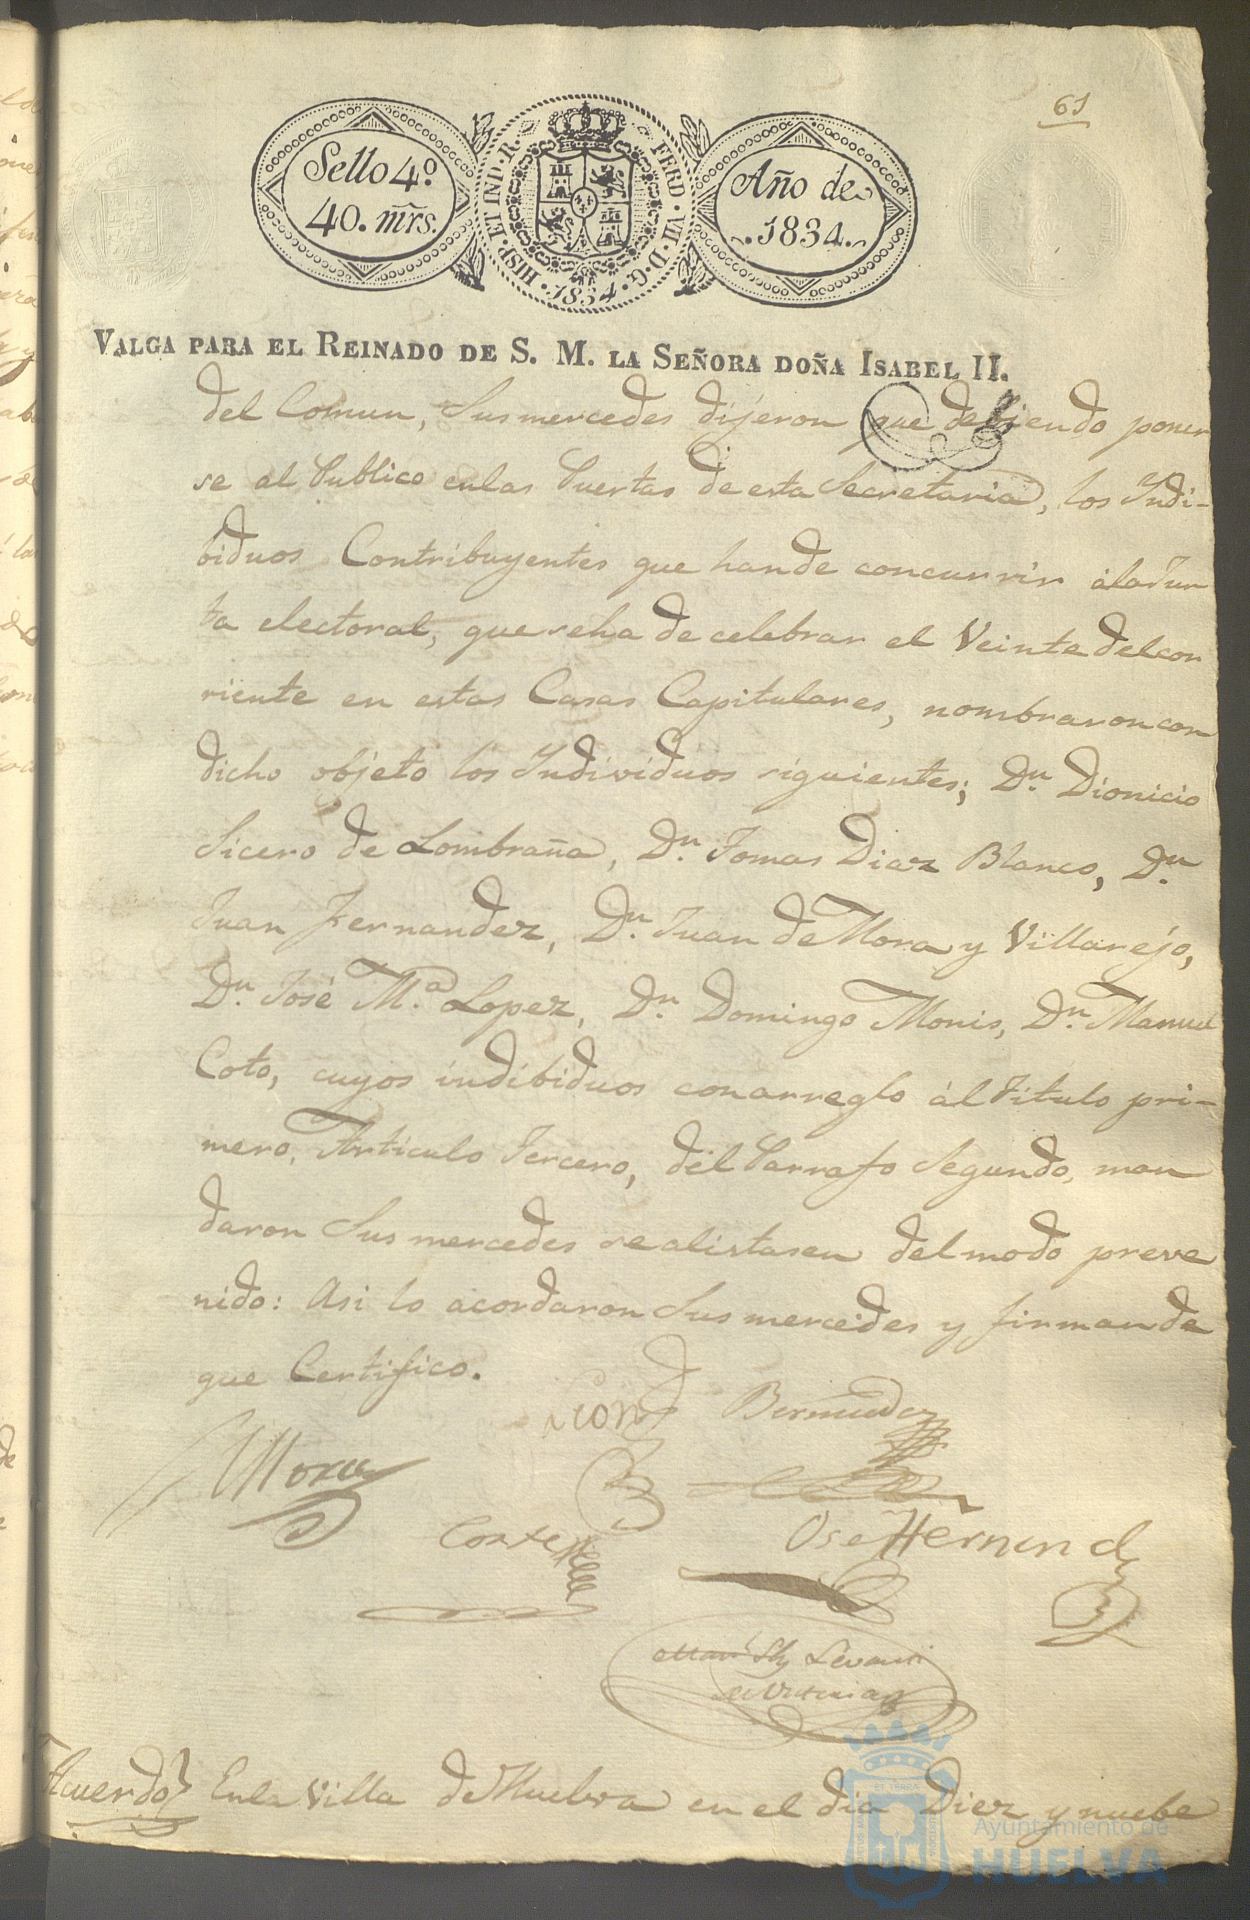 61
Sello 4º
40. mrs.
HISP · ET IND · R · FERD · VII · D · G · 1834 ·
Año de
1834.
VALGA PARA EL REINADO DE S. M. LA SEÑORA DOÑA ISABEL II.
del Comun, Sus mercedes dijeron que debiendo poner
se al Publico enlas Puertas de esta Secretaria, los Yndi-
biduos Contribuyentes que hande concurrir àlaJun
ta electoral, que seha de celebrar el Veinte delcor
riente en estas Casas Capitulares, nombraron con
dicho objeto los Yndividuos siguientes; Dn. Dionicio
Sicero de Lombraña, Dn. Tomas Diaz Blanco, Dn.
Juan Fernandez, Dn. Juan de Mora y Villarejo,
Dn. José M.ª Lopez, Dn. Domingo Monis, Dn. Manuel
Coto, cuyos indibiduos conarreglo àl Titulo pri-
mero, Articulo Tercero, del Parrafo Segundo, man
daron Sus mercedes se alistasen del modo preve
nido: Asi lo acordaron Sus mercedes y firman de
que Certifico.
Leon Bermudez
Mora
Cortes
Ose Hernand
Acuerdo} Enla Villa de Huelva en el dia Diez y nuebe
Ayuntamiento de
HUELVA